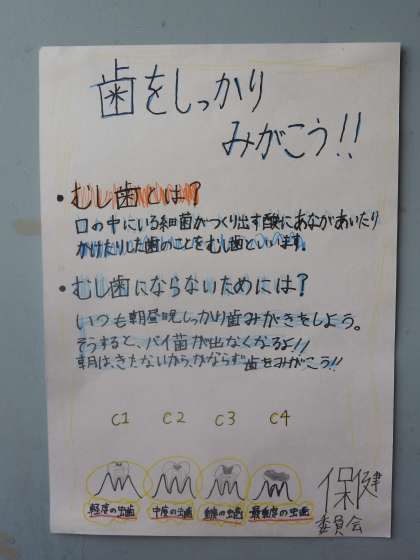 歯をしっかり
みがこう!!
・むし歯とは?
口の中にいる細菌がつくり出す酸にあながあいたり
かけたりした歯のことをむし歯といいます。
・むし歯にならないためには?
いつも朝昼晩しっかり歯みがきをしよう。
そうすると、バイ菌が出なくなるよ!!
朝は、きたないから、かならず歯をみがこう!!
C1 C2 C3 C4
軽度の虫歯 中度の虫歯 重度の虫歯 最重度の虫歯
保健
委員会